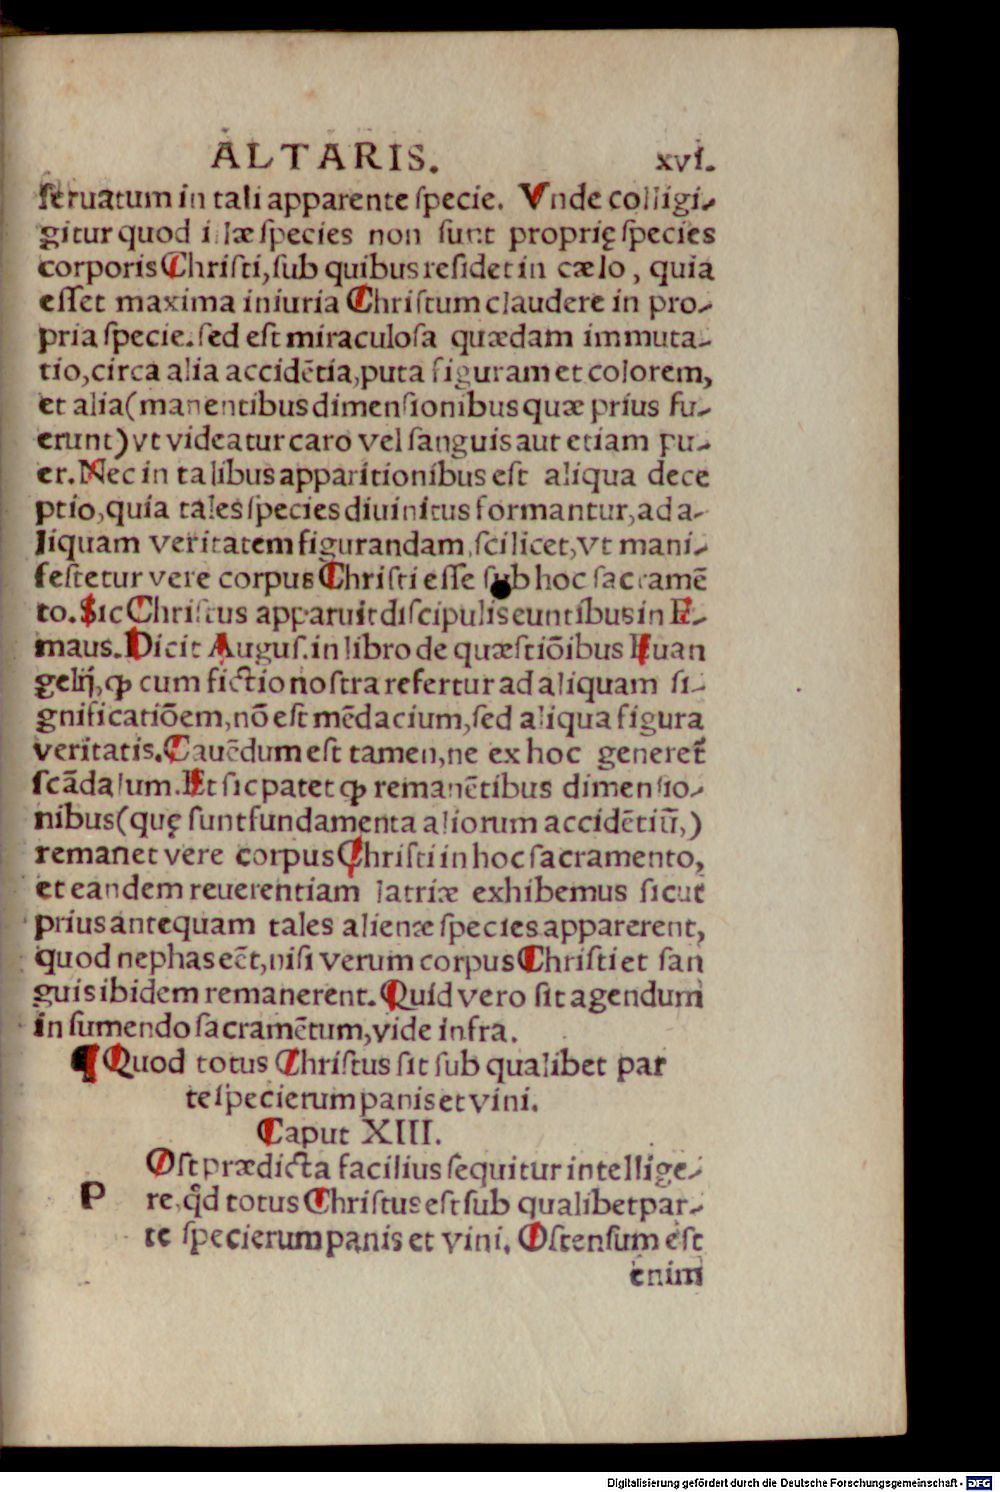 ALTARIS. xvi.
seruatum in tali apparente specie. Vnde colligi-
gitur quod illæ species non sunt proprię species
corporis Christi, sub quibus residet in cælo, quia
esset maxima iniuria Christum claudere in pro-
pria specie. sed est miraculosa quædam immuta-
tio, circa alia accidētia, puta figuram et colorem,
et alia (manentibus dimensionibus quæ prius fu-
erunt) vt videatur caro vel sanguis aut etiam pu-
er. Nec in talibus apparitionibus est aliqua dece
ptio, quia tales species diuinitus formantur, ad a-
liquam veritatem figurandam, scilicet, vt mani-
festetur vere corpus Christi esse sub hoc sacramē
to. Sic Christus apparuit discipulis euntibus in E-
maus. Dicit Augus. in libro de quæstiōibus Euan
gelij, ꝙ cum fictio nostra refertur ad aliquam si-
gnificatiōem, nō est mēdacium, sed aliqua figura
veritatis. Cauēdum est tamen, ne ex hoc generet᷑
scādalum. Et sic patet ꝙ remanētibus dimensio-
nibus (quę sunt fundamenta aliorum accidētiū,)
remanet vere corpus Christi in hoc sacramento,
et eandem reuerentiam latriæ exhibemus sicut
prius antequam tales alienæ species apparerent,
quod nephas eēt, nisi verum corpus Christi et san
guis ibidem remanerent. Quid vero sit agendum
in sumendo sacramētum, vide infra.
¶ Quod totus Christus sit sub qualibet par
te specierum panis et vini.
Caput XIII.
POst prædicta facilius sequitur intellige-
re, qd̄ totus Christus est sub qualibet par-
te specierum panis et vini. Ostensum est
enim
Digitalisierung gefördert durch die Deutsche Forschungsgemeinschaft - DFG